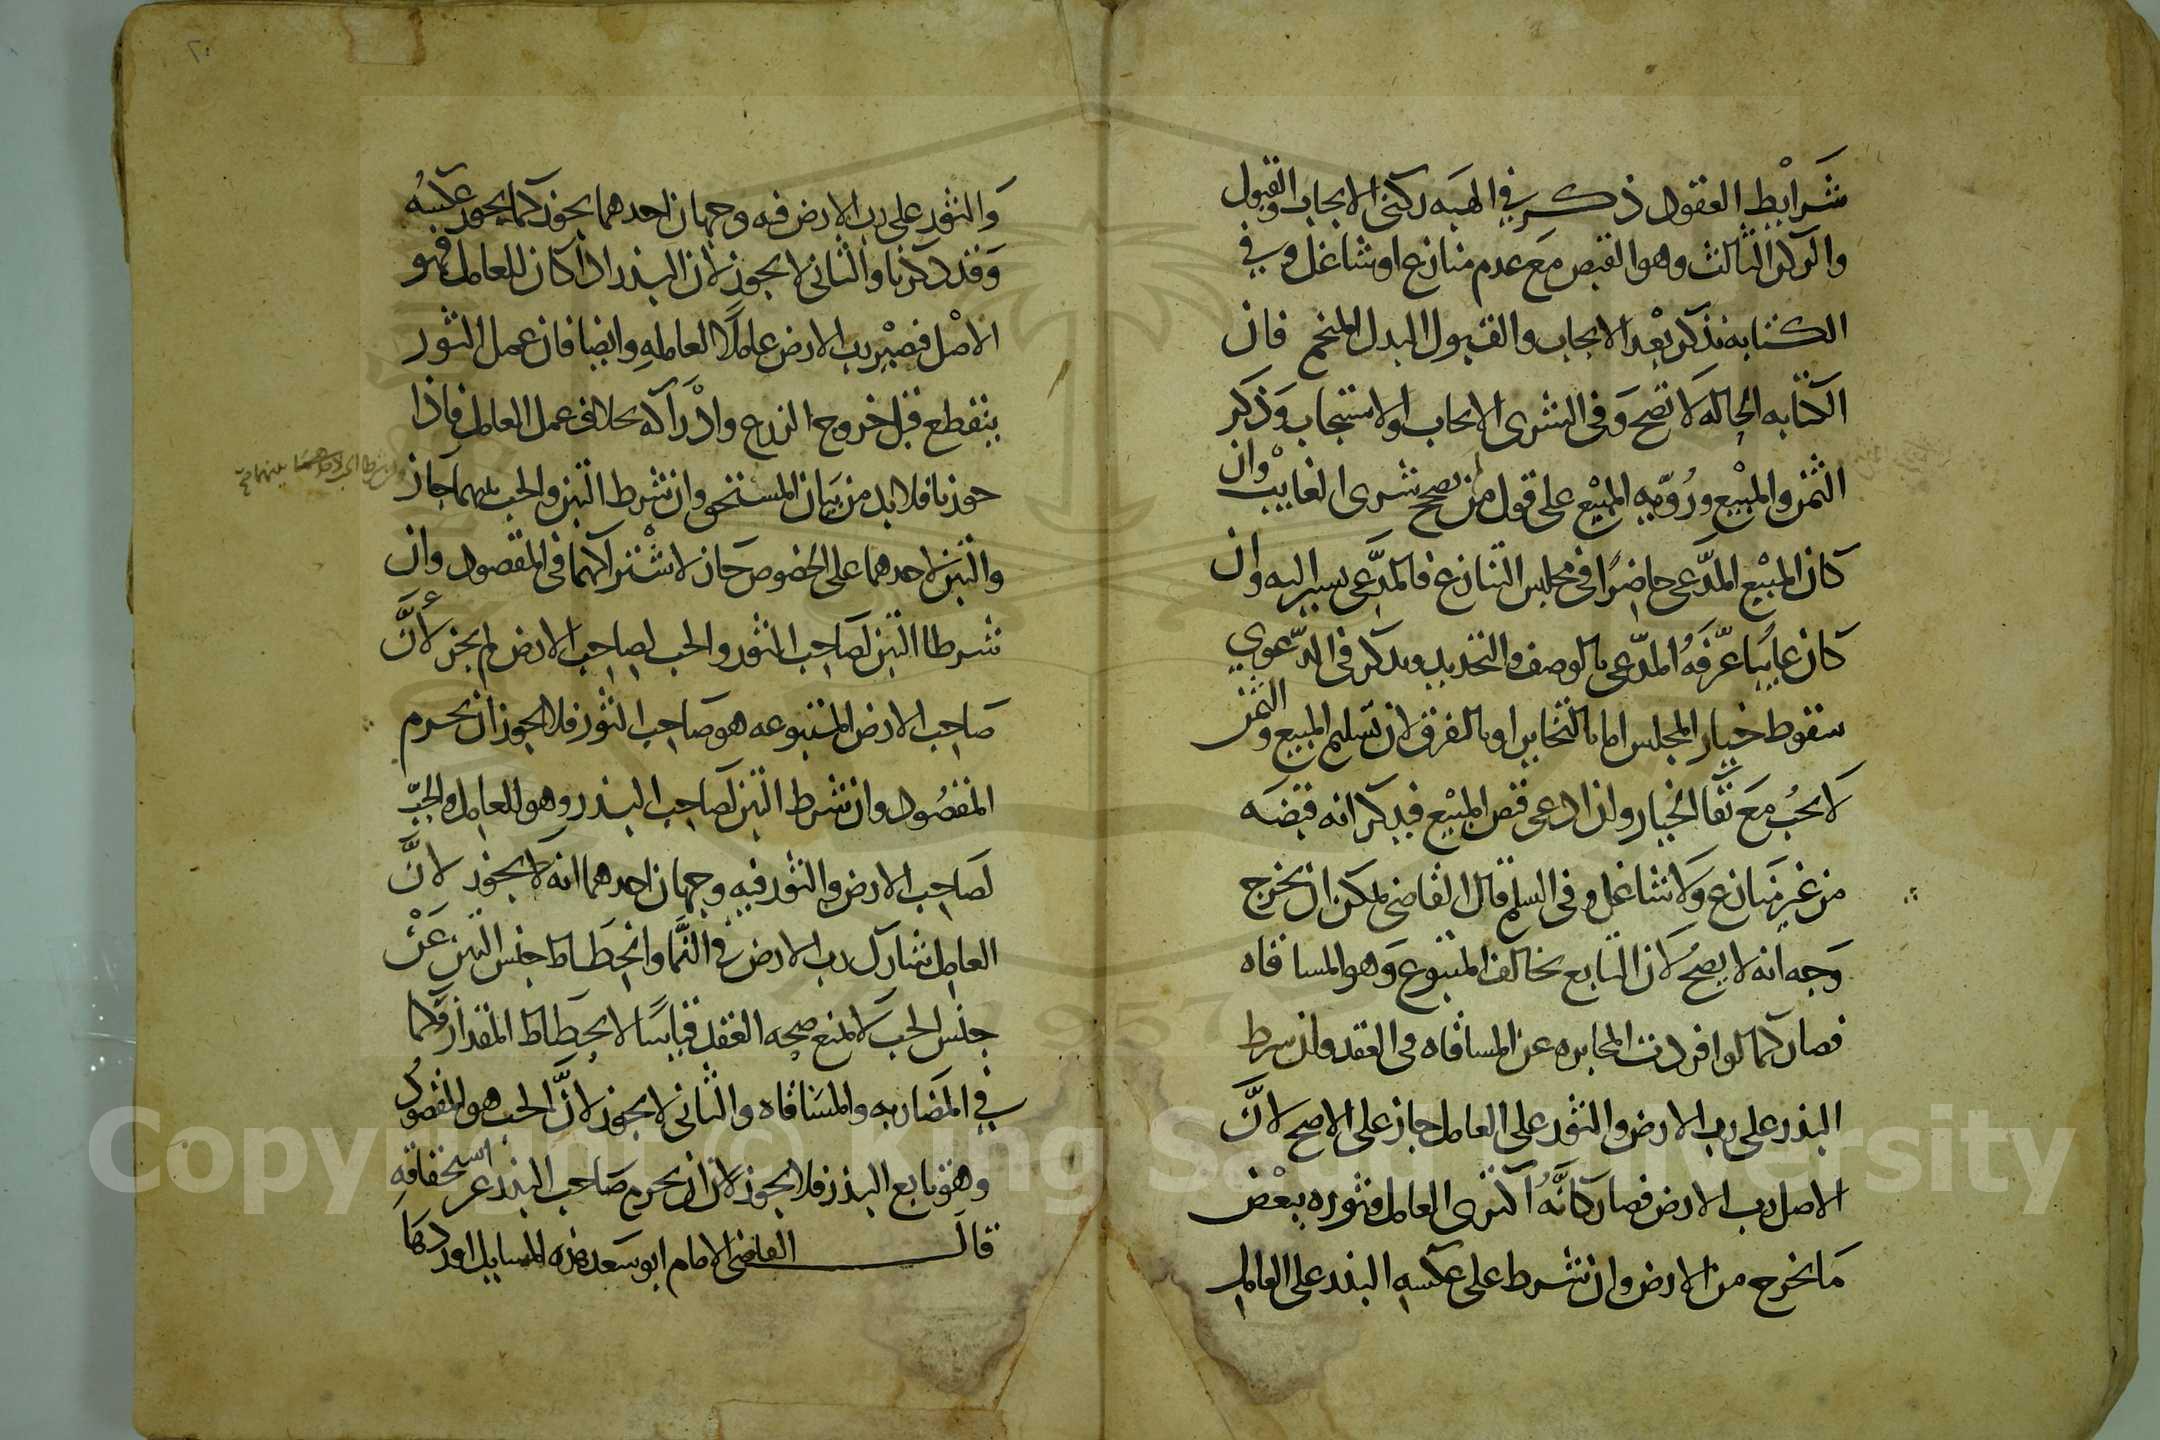 شرايط العقول ذكر في الهبه ركني الايجاب والقبول
والركن الثالث وهو القبض مع عدم منازع او شاغل وفي
الكتابه نذكر بعد الايجاب والقبول البدل المنجم فان
الكتابه الحاله لا تصح وفي الشرى الايجاب والاستيجاب وذكر
الثمن والمبيع ورؤيه المبيع على قول من يصحح شرى الغايب وان
كان المبيع المدعى حاضرا في مجلس التنازع فالمدعى يسير اليه وان
كان غايبا عرفه المدعى بالوصف والتحديد ويذكر في الدعوي
سقوط خيار المجلس اما بالتخاير او بالتفرق لان تسليم المبيع والثمن
لا يجب مع بقا الخيار واذا ادعى قبض المبيع فيذكر انه قبضه
من غير منازع ولا شاغل وفي السلم قال القاضي يمكن ان يخرج
وجه انه لا يصح لان التابع يخالف المتبوع وهو المساقاه
فصار كما لو افردت المخابره عن المساقاه في العقد وان شرط
البذر على رب الارض والثور على العامل جاز على الاصح لان
الاصل رب الارض فصار كانه اكترى العامل وثوره ببعض
ما يخرج من الارض وان شرط على عكسه البذر على العامل
والثور على رب الارض فيه وجهان احدهما يجوز كما يجوز عكسه
وقد ذكرنا والثاني لا يجوز لان البذر اذا كان للعامل فهو
الاصل فيصير رب الارض عاملا لعامله وايضا فان عمل الثور
ينقطع قبل خروج الزرع وادراكه بخلاف عمل العامل فاذا
جوزنا فلا بد من بيان المستحق وان شرط التبن والحب بينهما جاز
والتبن لاحدهما على الخصوص جاز لاشتراكهما في المقصول وان
شرطا التبن لصاحب الثور والحب لصاحب الارض لم يجز لان
صاحب الارض المتبوعه هو صاحب الثور فلا يجوز ان يحرم
المقصول وان شرط التبن لصاحب البذر وهو للعامل والحب
لصاحب الارض والثور فيه وجهان احدهما انه لا يجوز لان
العامل شارك رب الارض في النما وانحطاط جنس التبن عن
جنس الحب لا يمنع صحه العقد قياسا لانحطاط المقدار وكما
في المضاربه والمساقاه والثاني لا يجوز لان الحب هو المقصول
وهو تابع البذر فلا يجوز لان ان يحرم صاحب البذر عن استحقاقه
قال القاضي الامام ابو سعد هذه المسايل اوردها